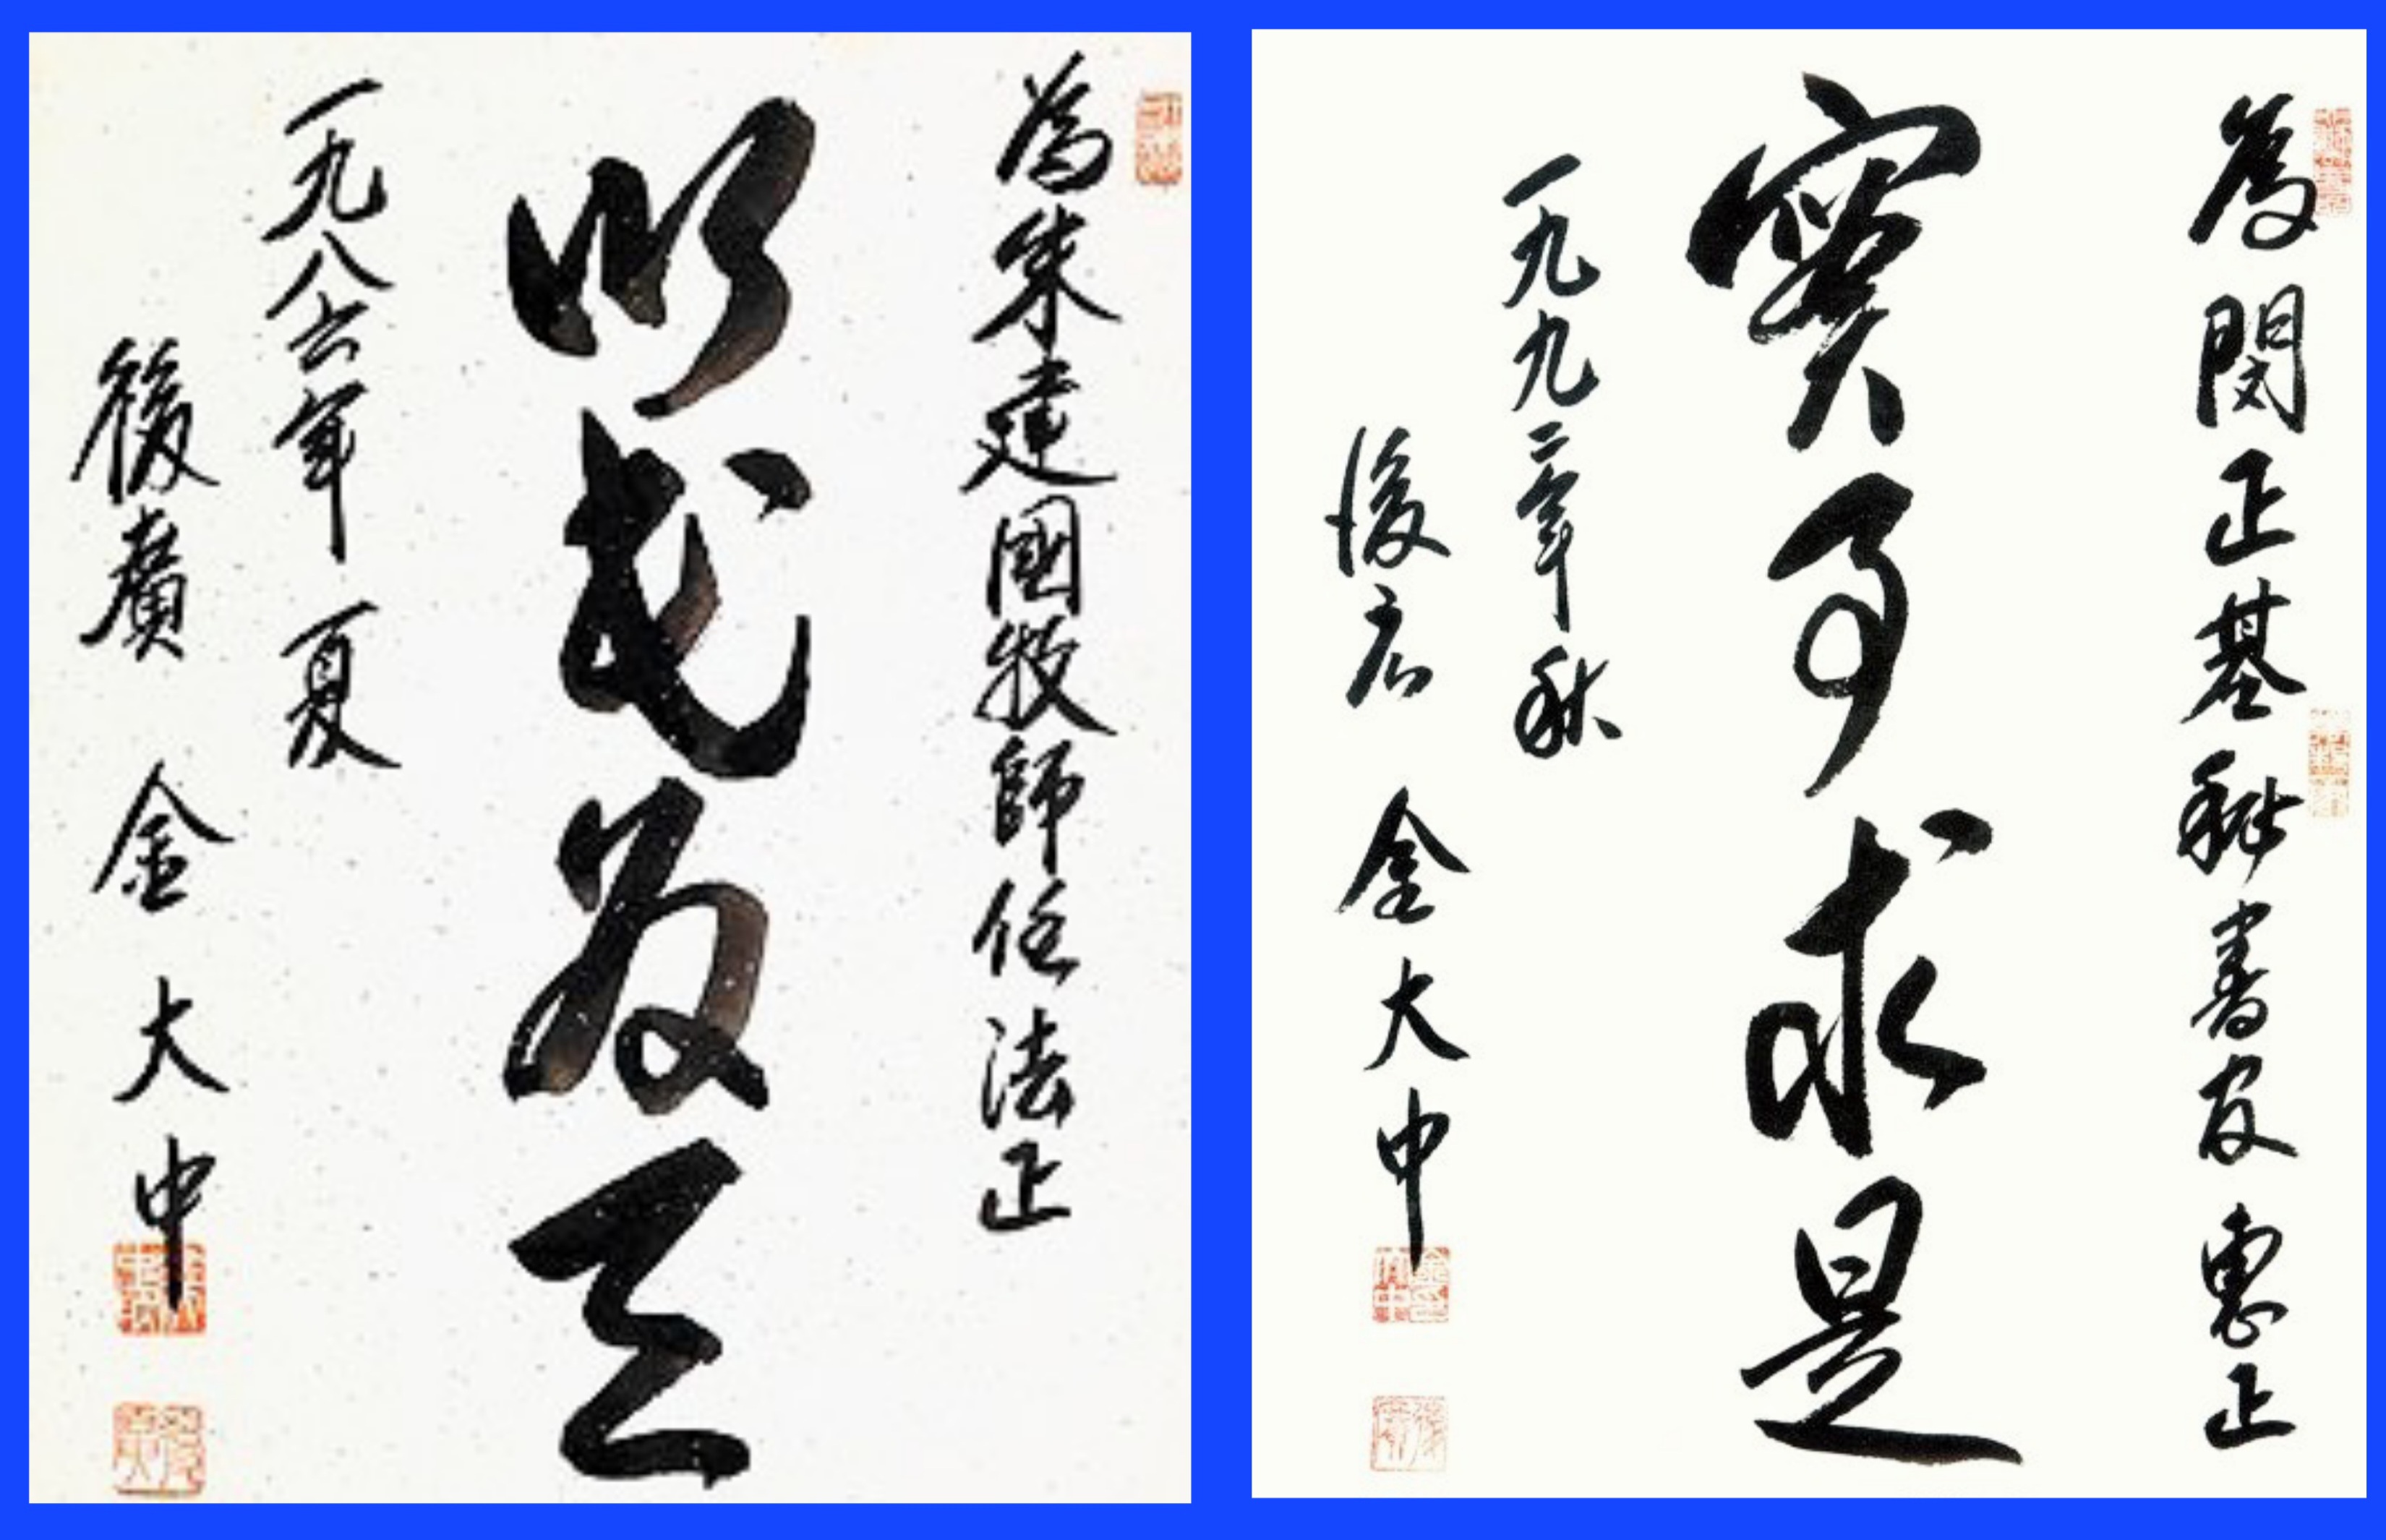 為朱建國牧師任法正
以民為天
一九八六年 夏
後廣 金大中
為閔正基秘書官 惠正
實事求是
一九九二年 秋
後広 金大中